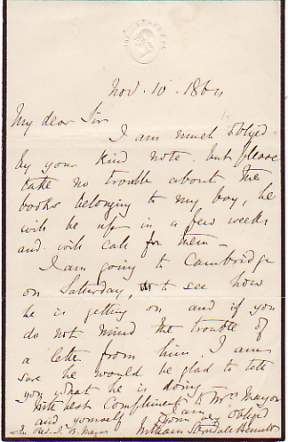 Nov. 10. 1864
My dear Sir
I am much obliged
by your kind note. but please
take no trouble about the
books belonging to my boy, he
will be up in a few weeks
and will call for them –
I am going to Cambridge
on Saturday, to see how
he is getting on and if you
do not mind the trouble of
a letter from him. I am
sure he would be glad to tell
you what he is doing.
With best Compliments to Mrs Mayor
and yourself I am
Yours obliged
William Sterndale Bennett
The Rev. J. B. Mayor